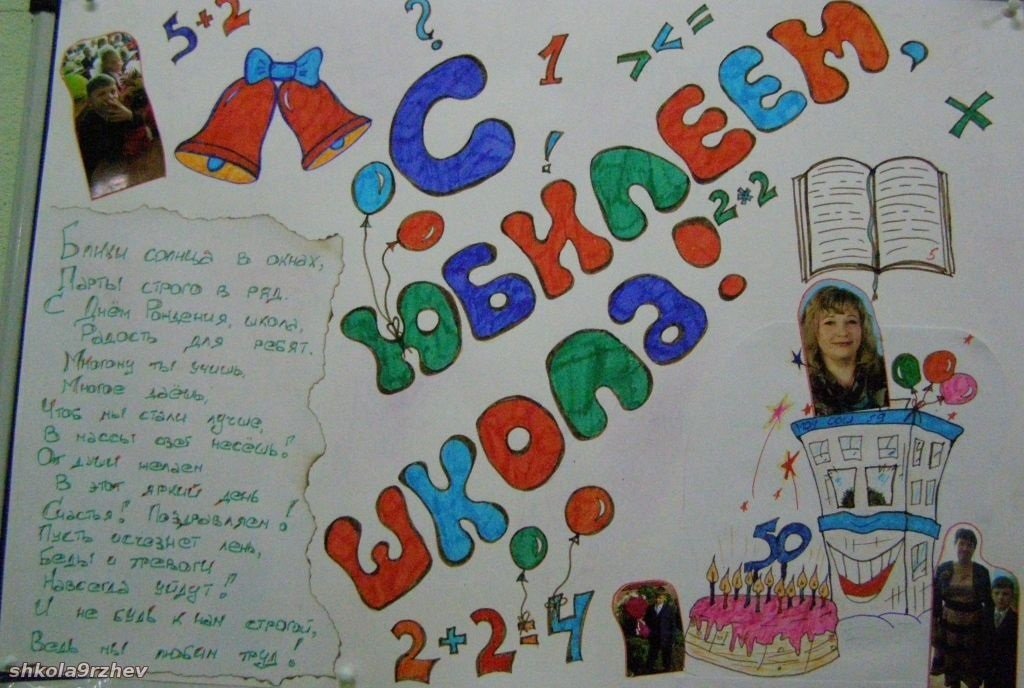 5+2
?
1
> < =
С
ЮБИЛЕЕМ,
!
×
2*2
5
ШКОЛА!
Блики солнца в окнах,
Парты строго в ряд.
С Днём Рождения, школа,
Радость для ребят.
Многому ты учишь,
Многое даёшь,
Чтоб мы стали лучше,
В массы свет несёшь!
От души желаем
В этот яркий день
Счастья! Поздравляем!
Пусть исчезнет лень,
Беды и тревоги
Навсегда уйдут!
И не будь к нам строгой,
Ведь мы любим труд!
2+2=4
50
shkola9rzhev